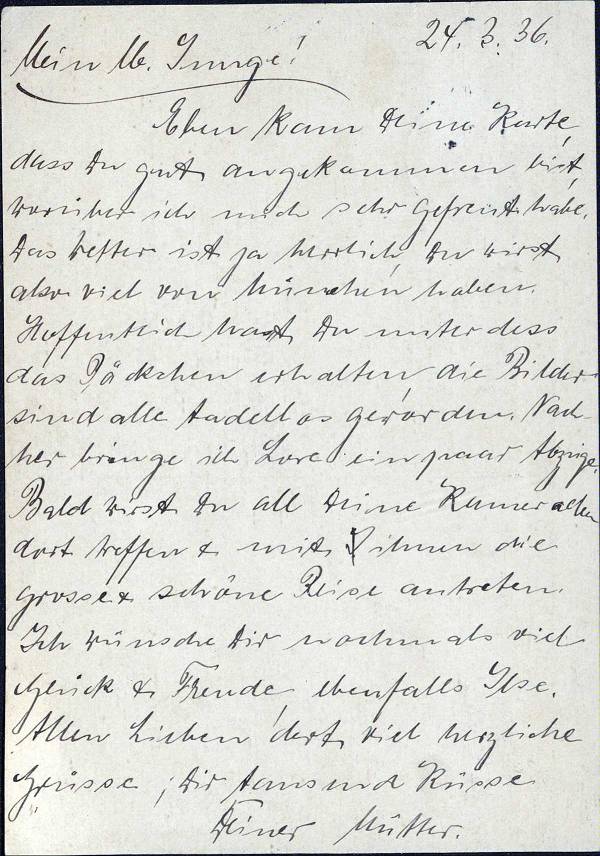 24. 3. 36.
Mein lb. Junge!
Eben kam Deine Karte,
dass Du gut angekommen bist,
worüber ich mich sehr gefreut habe.
Das Wetter ist ja herrlich, Du wirst
also viel von München haben.
Hoffentlich hast Du unterdess
das Päckchen erhalten, die Bilder
sind alle tadellos geworden. Nach-
her bringe ich Lore ein paar Abzüge.
Bald wirst Du all Deine Kameraden
dort treffen & mit ihnen die
grosse & schöne Reise antreten.
Ich wünsche Dir nochmals viel
Glück & Freude, ebenfalls Ilse.
Allen Lieben dort, viel herzliche
Grüsse, Dir tausend Küsse
Deiner Mutter.